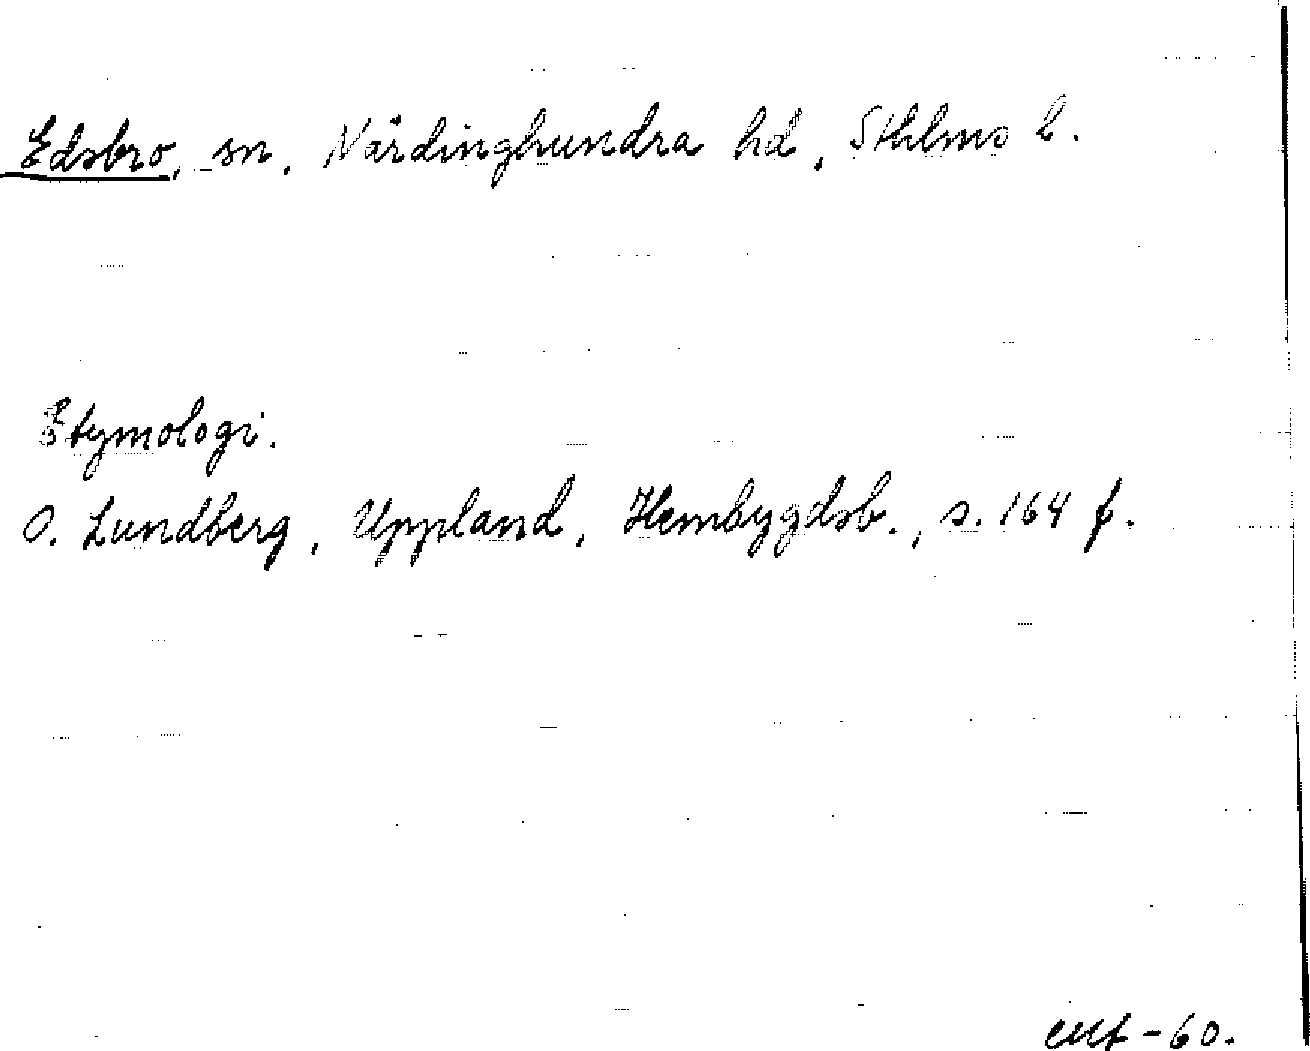 Edsbro, sn, Närdinghundra hd, Sthlms l.
Etymologi.
O. Lundberg, Uppland, Hembygdsb., s. 164 f.
-60.